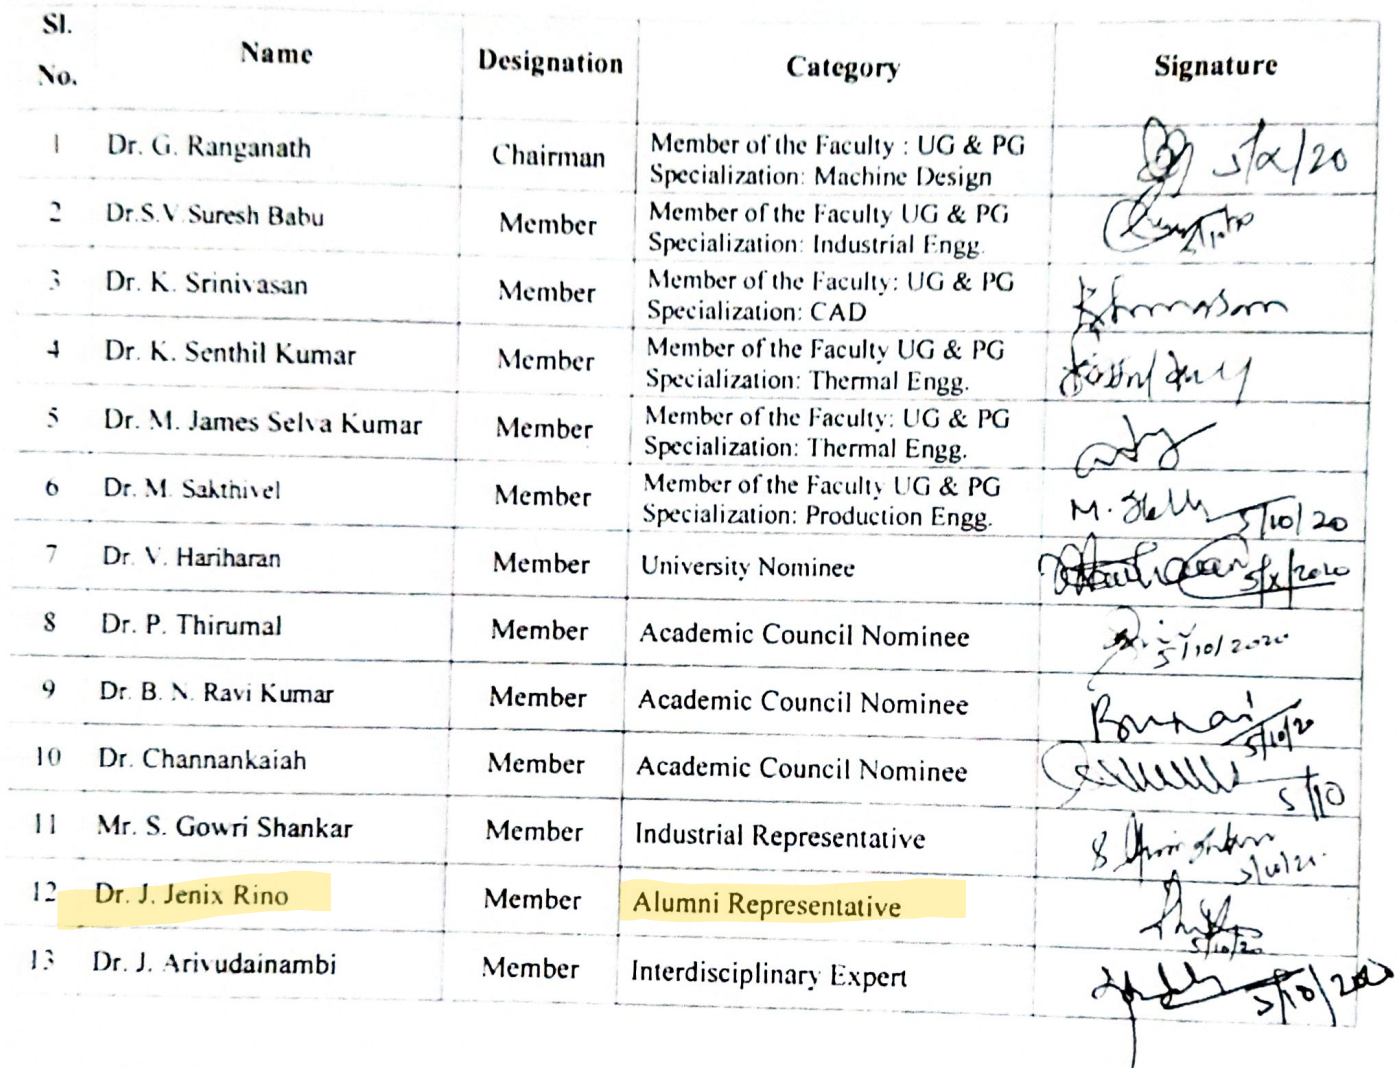 Sl. No. Name Designation Category Signature
1 Dr. G. Ranganath Chairman Member of the Faculty : UG & PG
Specialization: Machine Design
5/X/20
2 Dr.S.V.Suresh Babu Member Member of the Faculty UG & PG
Specialization: Industrial Engg.
3 Dr. K. Srinivasan Member Member of the Faculty: UG & PG
Specialization: CAD
4 Dr. K. Senthil Kumar Member Member of the Faculty UG & PG
Specialization: Thermal Engg.
5 Dr. M. James Selva Kumar Member Member of the Faculty: UG & PG
Specialization: Thermal Engg.
6 Dr. M. Sakthivel Member Member of the Faculty UG & PG
Specialization: Production Engg.
5/10/20
7 Dr. V. Hariharan Member University Nominee 5/X/2020
8 Dr. P. Thirumal Member Academic Council Nominee 5/10/2020
9 Dr. B. N. Ravi Kumar Member Academic Council Nominee 5/10/20
10 Dr. Channankaiah Member Academic Council Nominee 5/10
11 Mr. S. Gowri Shankar Member Industrial Representative
12 Dr. J. Jenix Rino Member Alumni Representative 5/10/20
13 Dr. J. Arivudainambi Member Interdisciplinary Expert 5/10/2020